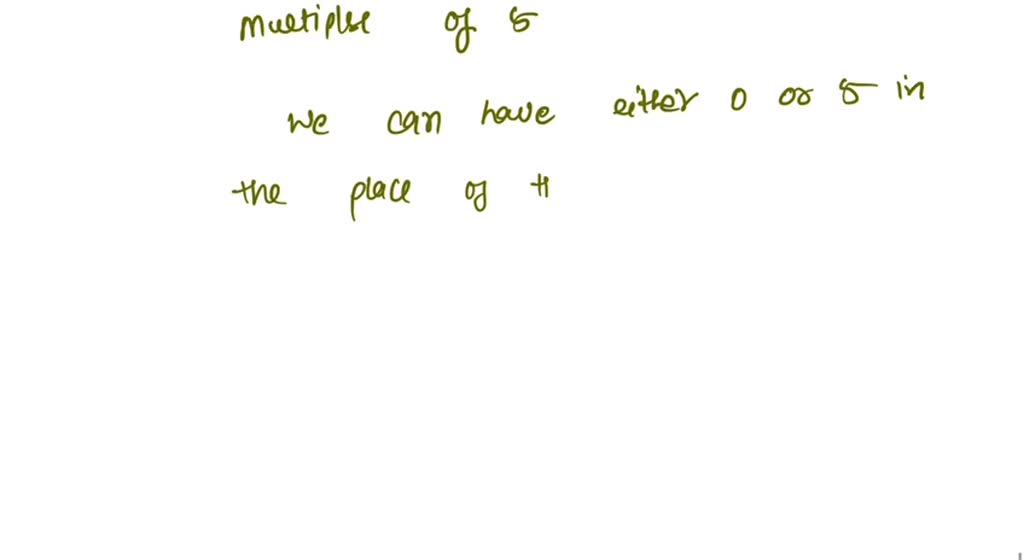 Multiple of 5
We can have either 0 or 5 in
the place of t